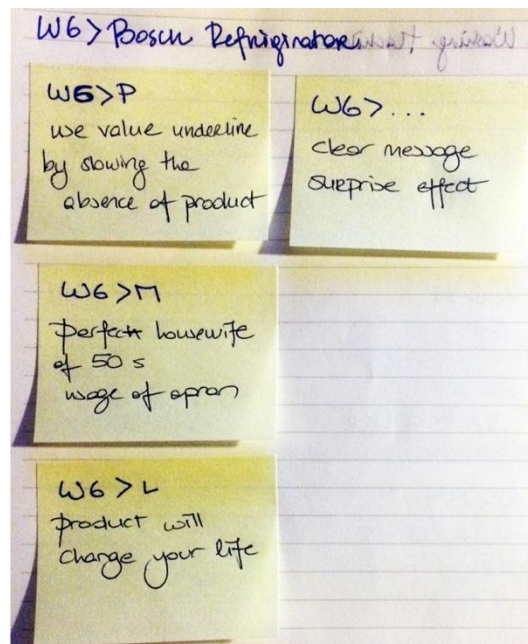 W6> Bosch Refriginator
W6>P
use value underline
by slowing the
absence of product
W6> ...
clear message
surprise effect
W6>M
perfect housewife
of 50 s
usage of apron
W6>L
product will
change your life